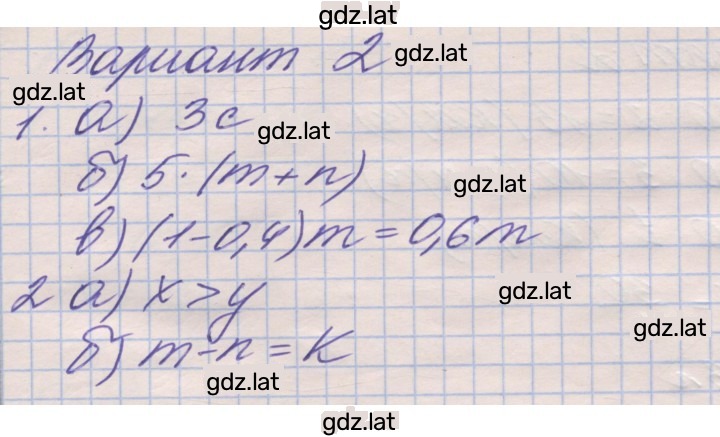 gdz.lat
Вариант 2 gdz.lat
gdz.lat
1. а) 3c gdz.lat
б) 5·(m+n) gdz.lat
в) (1-0,4)m=0,6m
2 а) x>y gdz.lat
gdz.lat
б) m-n=K
gdz.lat
gdz.lat